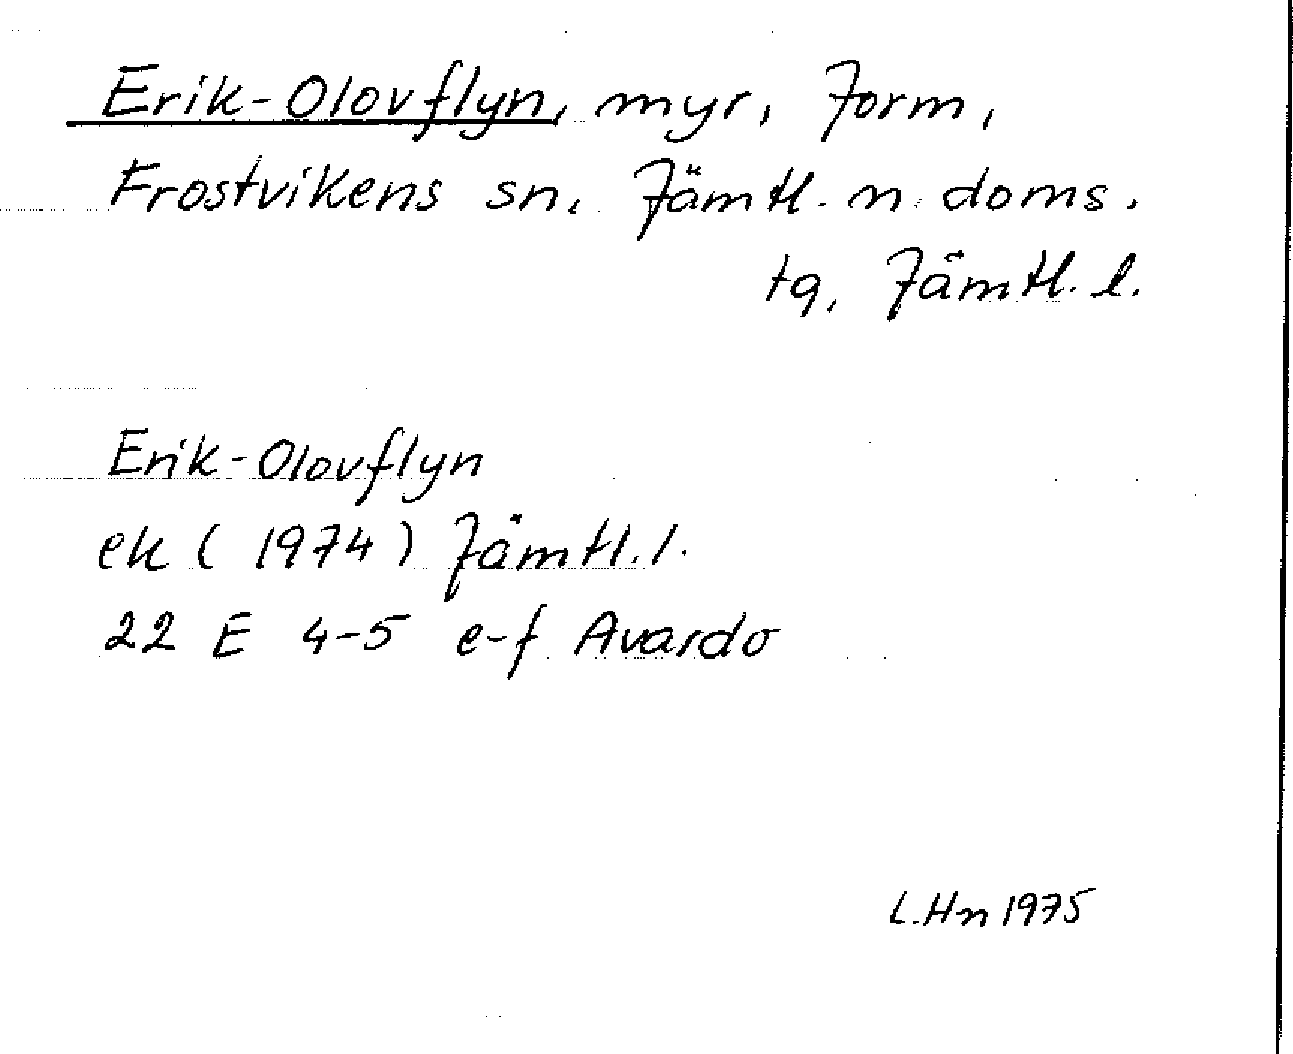 Erik-Olovflyn, myr, Jorm,
Frostvikens sn, Jämtl. n. doms.
tg, Jämtl. l.
Erik-Olovflyn
ek (1974) Jämtl. l.
22 E 4-5 e-f Avardo
L.Hn 1975